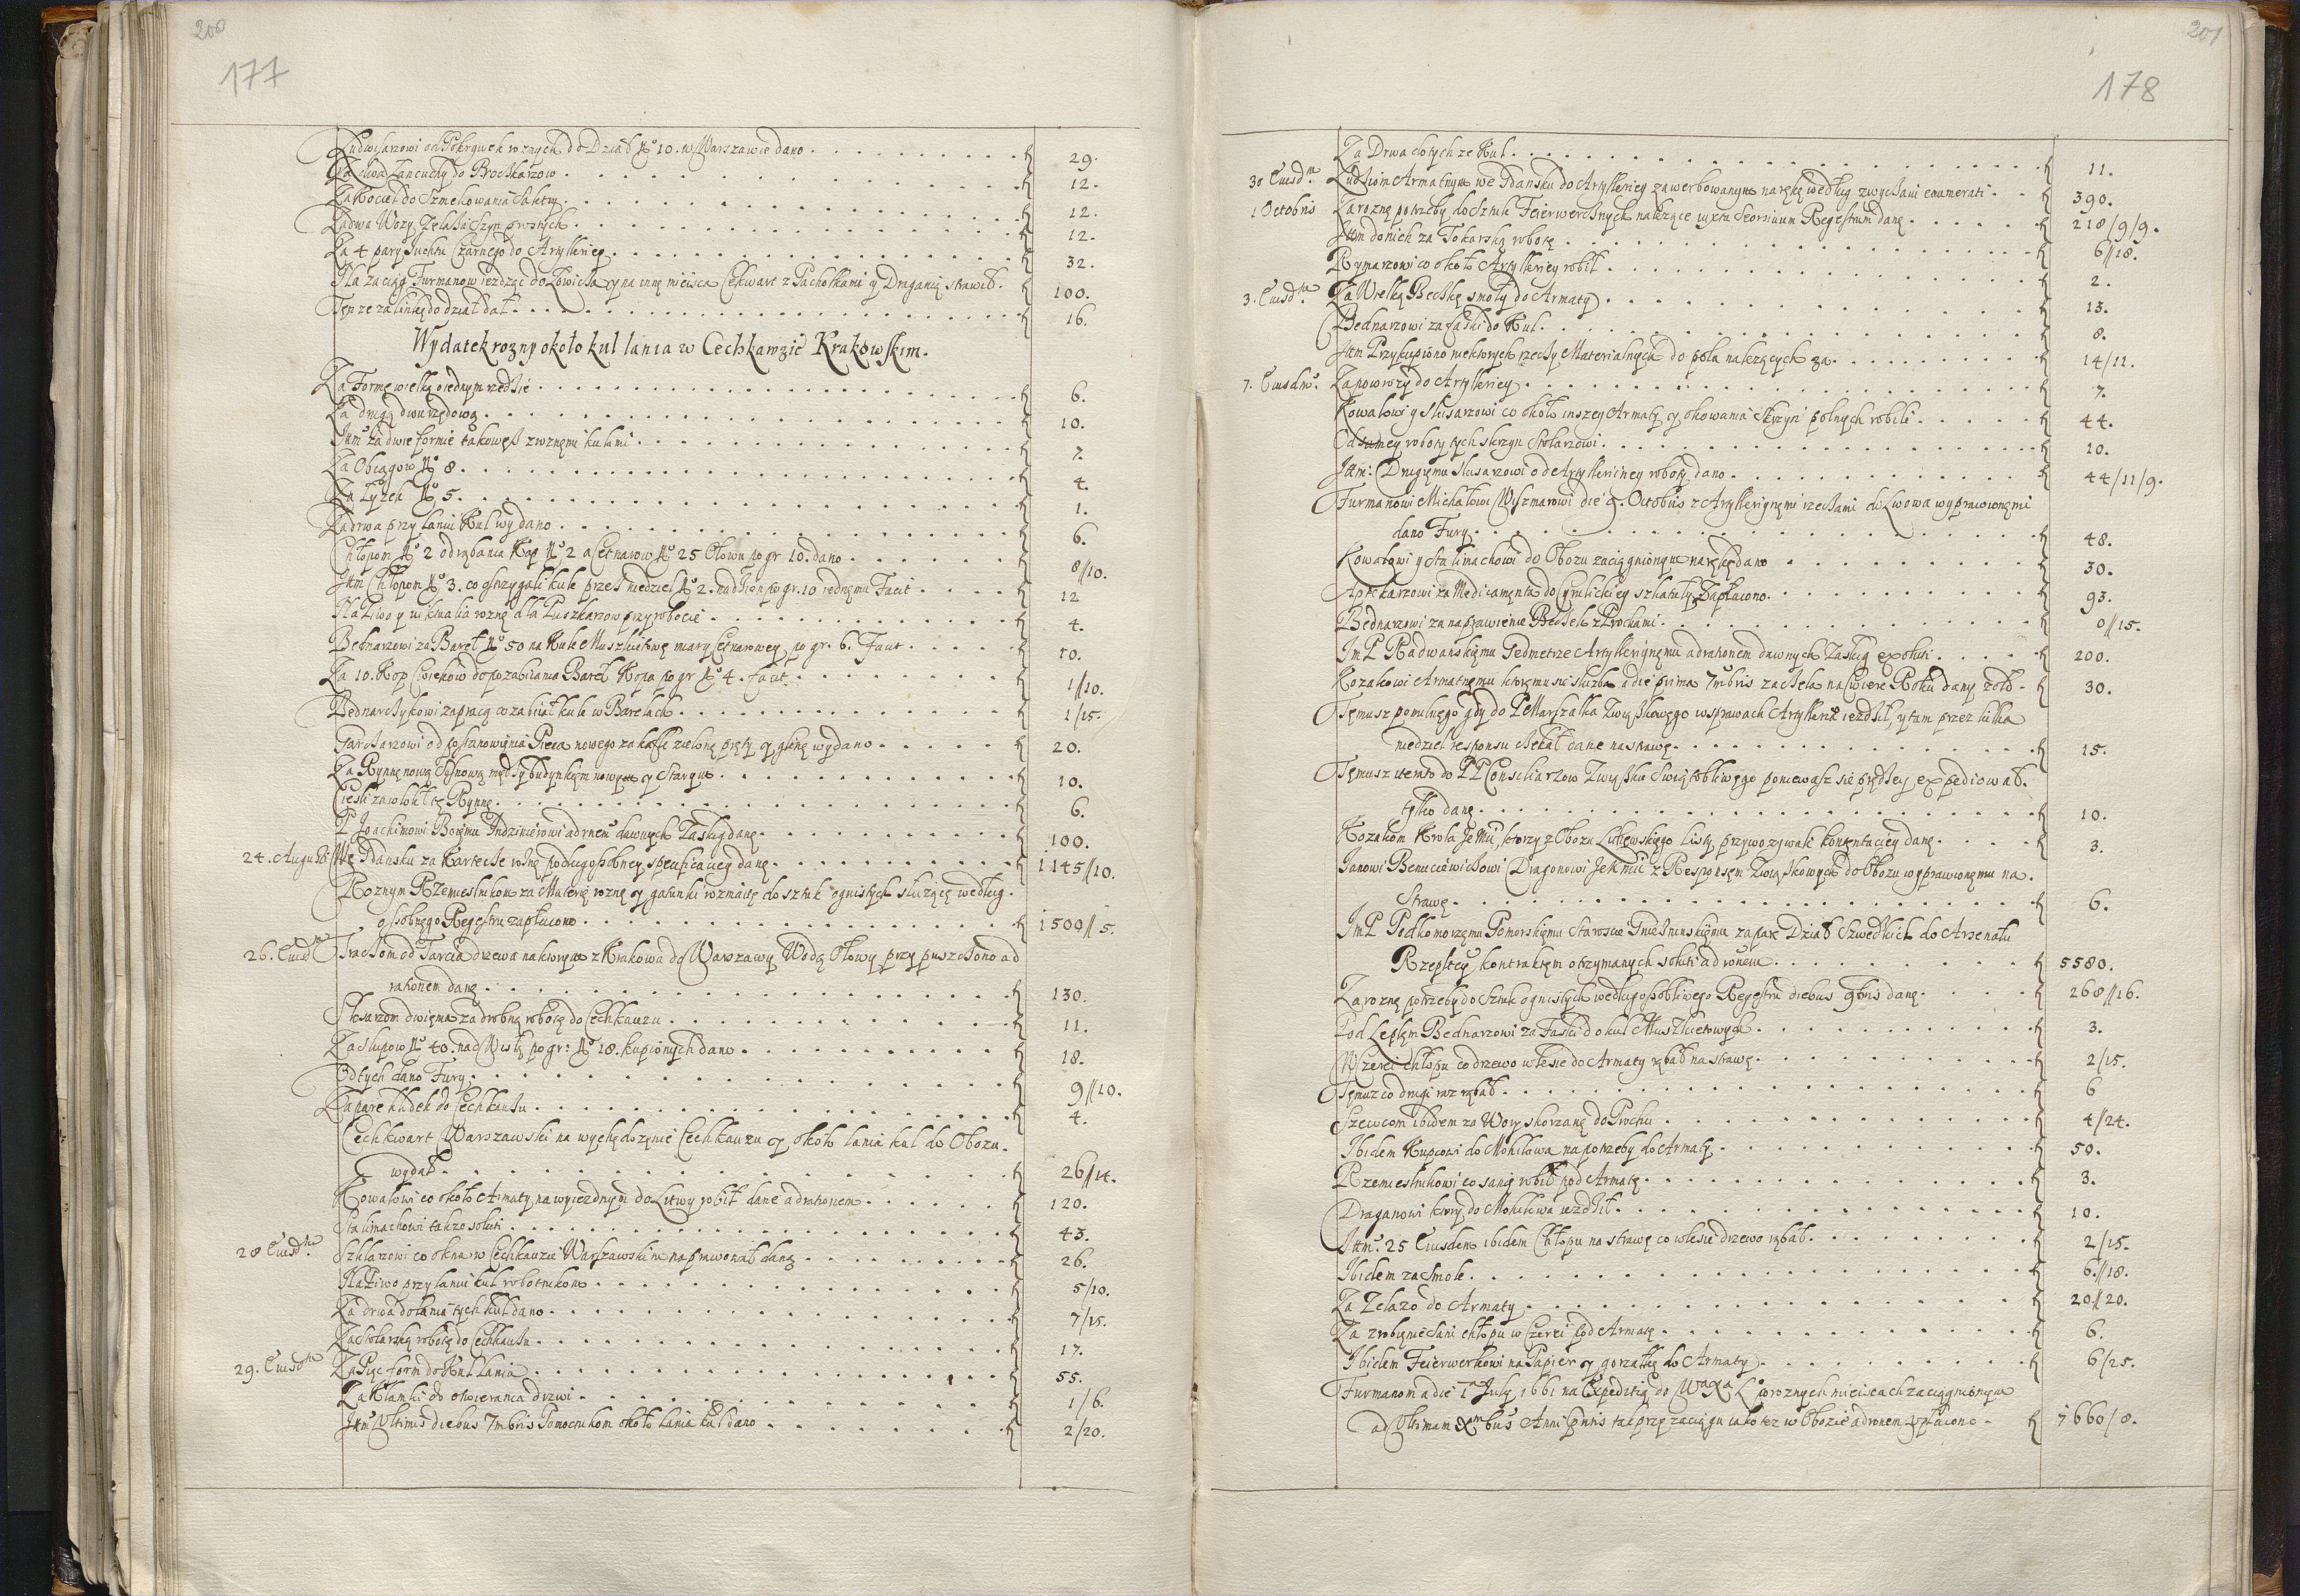 200
177
Ludwisarzowi od Pokrywek roznych do Dział No 10. w Warszawie dano 29.
Za dwa Łancuchy do Prochkarzow 12.
Za Kocieł do Szmelcowania Saletry 12.
Za dwa Wozy Zelaza Szyn prostych 12.
Za 4 pary Juchtu Czarnego do Artylleriey 32.
Na zaciąg Furmanow iezdząc do Łowicza y na inne mieisca Cekwart z Pachołkami y Dragonią strawił 100.
Tęn ze za linię do dział dał 16.
Wydatek rozny około kul lania w Cechkawzie Krakowskim.
Za Formę wielką o iednym rzędzie 6.
Za drugą dwurzędową 10.
Ittm za dwie formie takowesz z roznemi kulami 7.
Za Obcągow No 8 4.
Za Łyzek No 5 1.
Za drwa przy laniu Kul wydano 6.
Chłopom No 2 od rąbania Kop No 2 a Cetnarow No 25 Ołowu po gr 10. dano 8//10.
Ittm Chłopom No 3. co obrzygali kule przez niedziel No 2. na dzien po gr. 10 iednęmu Facit 12
Na Piwo y wiktualia rozne dla Puszkarzow przy robocie 4.
Bednarzowi za Barył No 50 na Kule Muszkietowe miary Cetnarowey, po gr. 6. Facit 10.
Za 10. Kop Cwiekow do pozabiiania Barył Kopa po gr No 4. facit 1//10.
Bednarczykowi za pracą co zabiiał kule w Barełach 1/15.
Garczarzowi od postanowienia Pieca nowego za kafle zielone pręty y glinę wydano 20.
Za Rynnę nową Sosnową między budynkiem nowym y Starym 10.
Ciesli za włokł tę Rynnę 6.
P Joachimowi Boiemu Indzinierowi ad rnem dawnych Zasług dane 100.
24. Augusti We Gdansku za Kartecze rozne podług osobney specificatiey dane 1145//10.
Roznym Rzemieslnikom za Materię rozne y gatunki rozmaite do sztuk ognistych słuzące według
osobnego Regestru zapłacono 1509//5.
26. Eiusdm Traczom od Tarcia drzewa na ktorym z Krakowa do Warszawy Wodą Ołowy przypuszczono ad
rationem dane 130.
Slosarzom dwięma za drobną robotę do Cechkauzu 11.
Za slupow No 40. nad Wisłą po gr: No 18. kupionych dano 18.
Od tych dano Fury 9//10.
Za parę kłodek do Cechkauzu 4.
Cechkwart Warszawski na wychędozęnie Cechkauzu y około lania kul do Obozu
wydał 26//14.
Kowalowi co około Armaty na wyiezdnym do Litwy robił dane ad rationem 120.
Stalmachowi takze soluti 43.
28 Eiusdm Szklarzowi co okna w Cechkauzie Warszawskim naprawował dane 26.
Na Piwo przy laniu kul robotnikom 5/10.
Za drwa do lania tych kul dano 7/15.
Za Stolarską robotę do Cechkauzu 17.
29. Eiusdm Za Pięc form do Kul lania 55.
Za Klamki do otwierania drzwi 1/6.
Ittm Ultimis diebus 7mbris Pomocnikom około lania kul dano 2/20.
201
178
Za Drwa do tych ze Kul 11.
30 Eiusdm Ludziom Armatnym we Gdansku do Artylleriey zawerbowanym na rękę według zwyczaiu enumerati 390.
1 Octobris Za rozne potrzeby do Sztuk Feierwercznych nalezące iuxta Seorsiuum Regestrum dane 218/9/9.
Ittm do nich za Tokarską robotę 6//18.
Rymarzowi co około Artylleriey robił 2.
3. Eiusdm Za Wielką Beczkę smoły do Armaty 13.
Bednarzowi za faski do Kul 8.
Ittm Przykupiono niektorych rzeczy Materialnych do pola nalezących za 14/11.
7. Eiusdm Za powrozy do Artylleriey 7.
Kowalowi y Slusarzowi co około inszey Armaty, y okowania Skrzyn polnych robili 44.
Od samey roboty tych skrzyn Stolarzowi 10.
Ittm: Drugięmu Slusarzowi od Artylleriiney roboty dano 44/11/9.
Furmanowi Michałowi Wiszmarowi die 9. Octobris z Artylleriynęmi rzeczami do Lwowa wyprawionęmi
dano Fury 48.
Kowalowi y Stalmachowi do Obozu zaciągnionym na rękę dano 30.
Aptekarzowi za Medicamenta do Cyrulickiey szkatuły Zapłacono 93.
Bednarzowi za naprawienie Beczek z Prochami 0//15.
Im P Radwanskięmu Gedmetrze Artyllerignęmu ad rationem dawnych Zasług exoluti 200.
Kozakowi Armatnęmu ktoremu się słuzba a die prima 7mbris zaczęła na Cwierc Roku dany zołd 30.
Tęmusz pomienięgo gdy do P Marszałka Związkowego w sprawach Artylleriei iezdził, y tam przez kilka
niedziel responsu czekał dane na strawę 15.
Tęmusz iterato do PP Consiliarzow Związku Swiątobliwego poniewasz się prędzey expediował
tylko dane 10.
Kozakom Krola Je Mći, ktorzy z Obozu Litewskiego Listy przywozywali kontentaciey dane 3.
Janowi Benuciewiczowi Dragonowi Jek Mći z Responsęm Związkowych do Obozu wyprawionęmu na
Strawę 6.
Im P Podkomorzęmu Pomorskięmu Staroscie Gnieznienskięmu za parę Dział Szwedkich do Arsenału
Rzeplteÿ kontraktęm otrzymanych soluti ad ronem 5580.
Za rozne potrzeby do Sztuk ognistych według osobliwego Regestru diebus 9bris dane 268//16.
Pod Leplęm Bednarzowi za Faski do kul Muszkietowych 3.
W Czerei chłopu co drzewo w lesie do Armaty rąbał na strawę 2/15.
Tęmuz co drugi raz rąbał 6
Szewcom ibidem za Wory skorzane do Prochu 4/24.
Ibidem Kupcowi do Mohilowa na potrzeby do Armaty 50.
Rzemieslnikowi co sanie robił pod Armatę 3.
Draganowi ktory do Mohilewa iezdził 10.
Ittm: 25 Eiusdem ibidem Chłopu na strawę co w lesie drzewo rąbał 2/15.
Ibidem za Smołę 6.//18.
Za Zelazo do Armaty 20//20.
Za zrobięnie Sani chłopu w Czerei pod Armatę 6.
Ibidem Feierwerkowi na Papier y gorzałkę do Armaty 6/25.
Furmanom a die 1a July 1661 na Expeditią do W. X. L. w roznych mieiscach zaciągnionym
ad Ultimam Xmbris Anni psntis tak przy zaciągu iako tez w Obozie ad ronem zapłacono 7660/8.